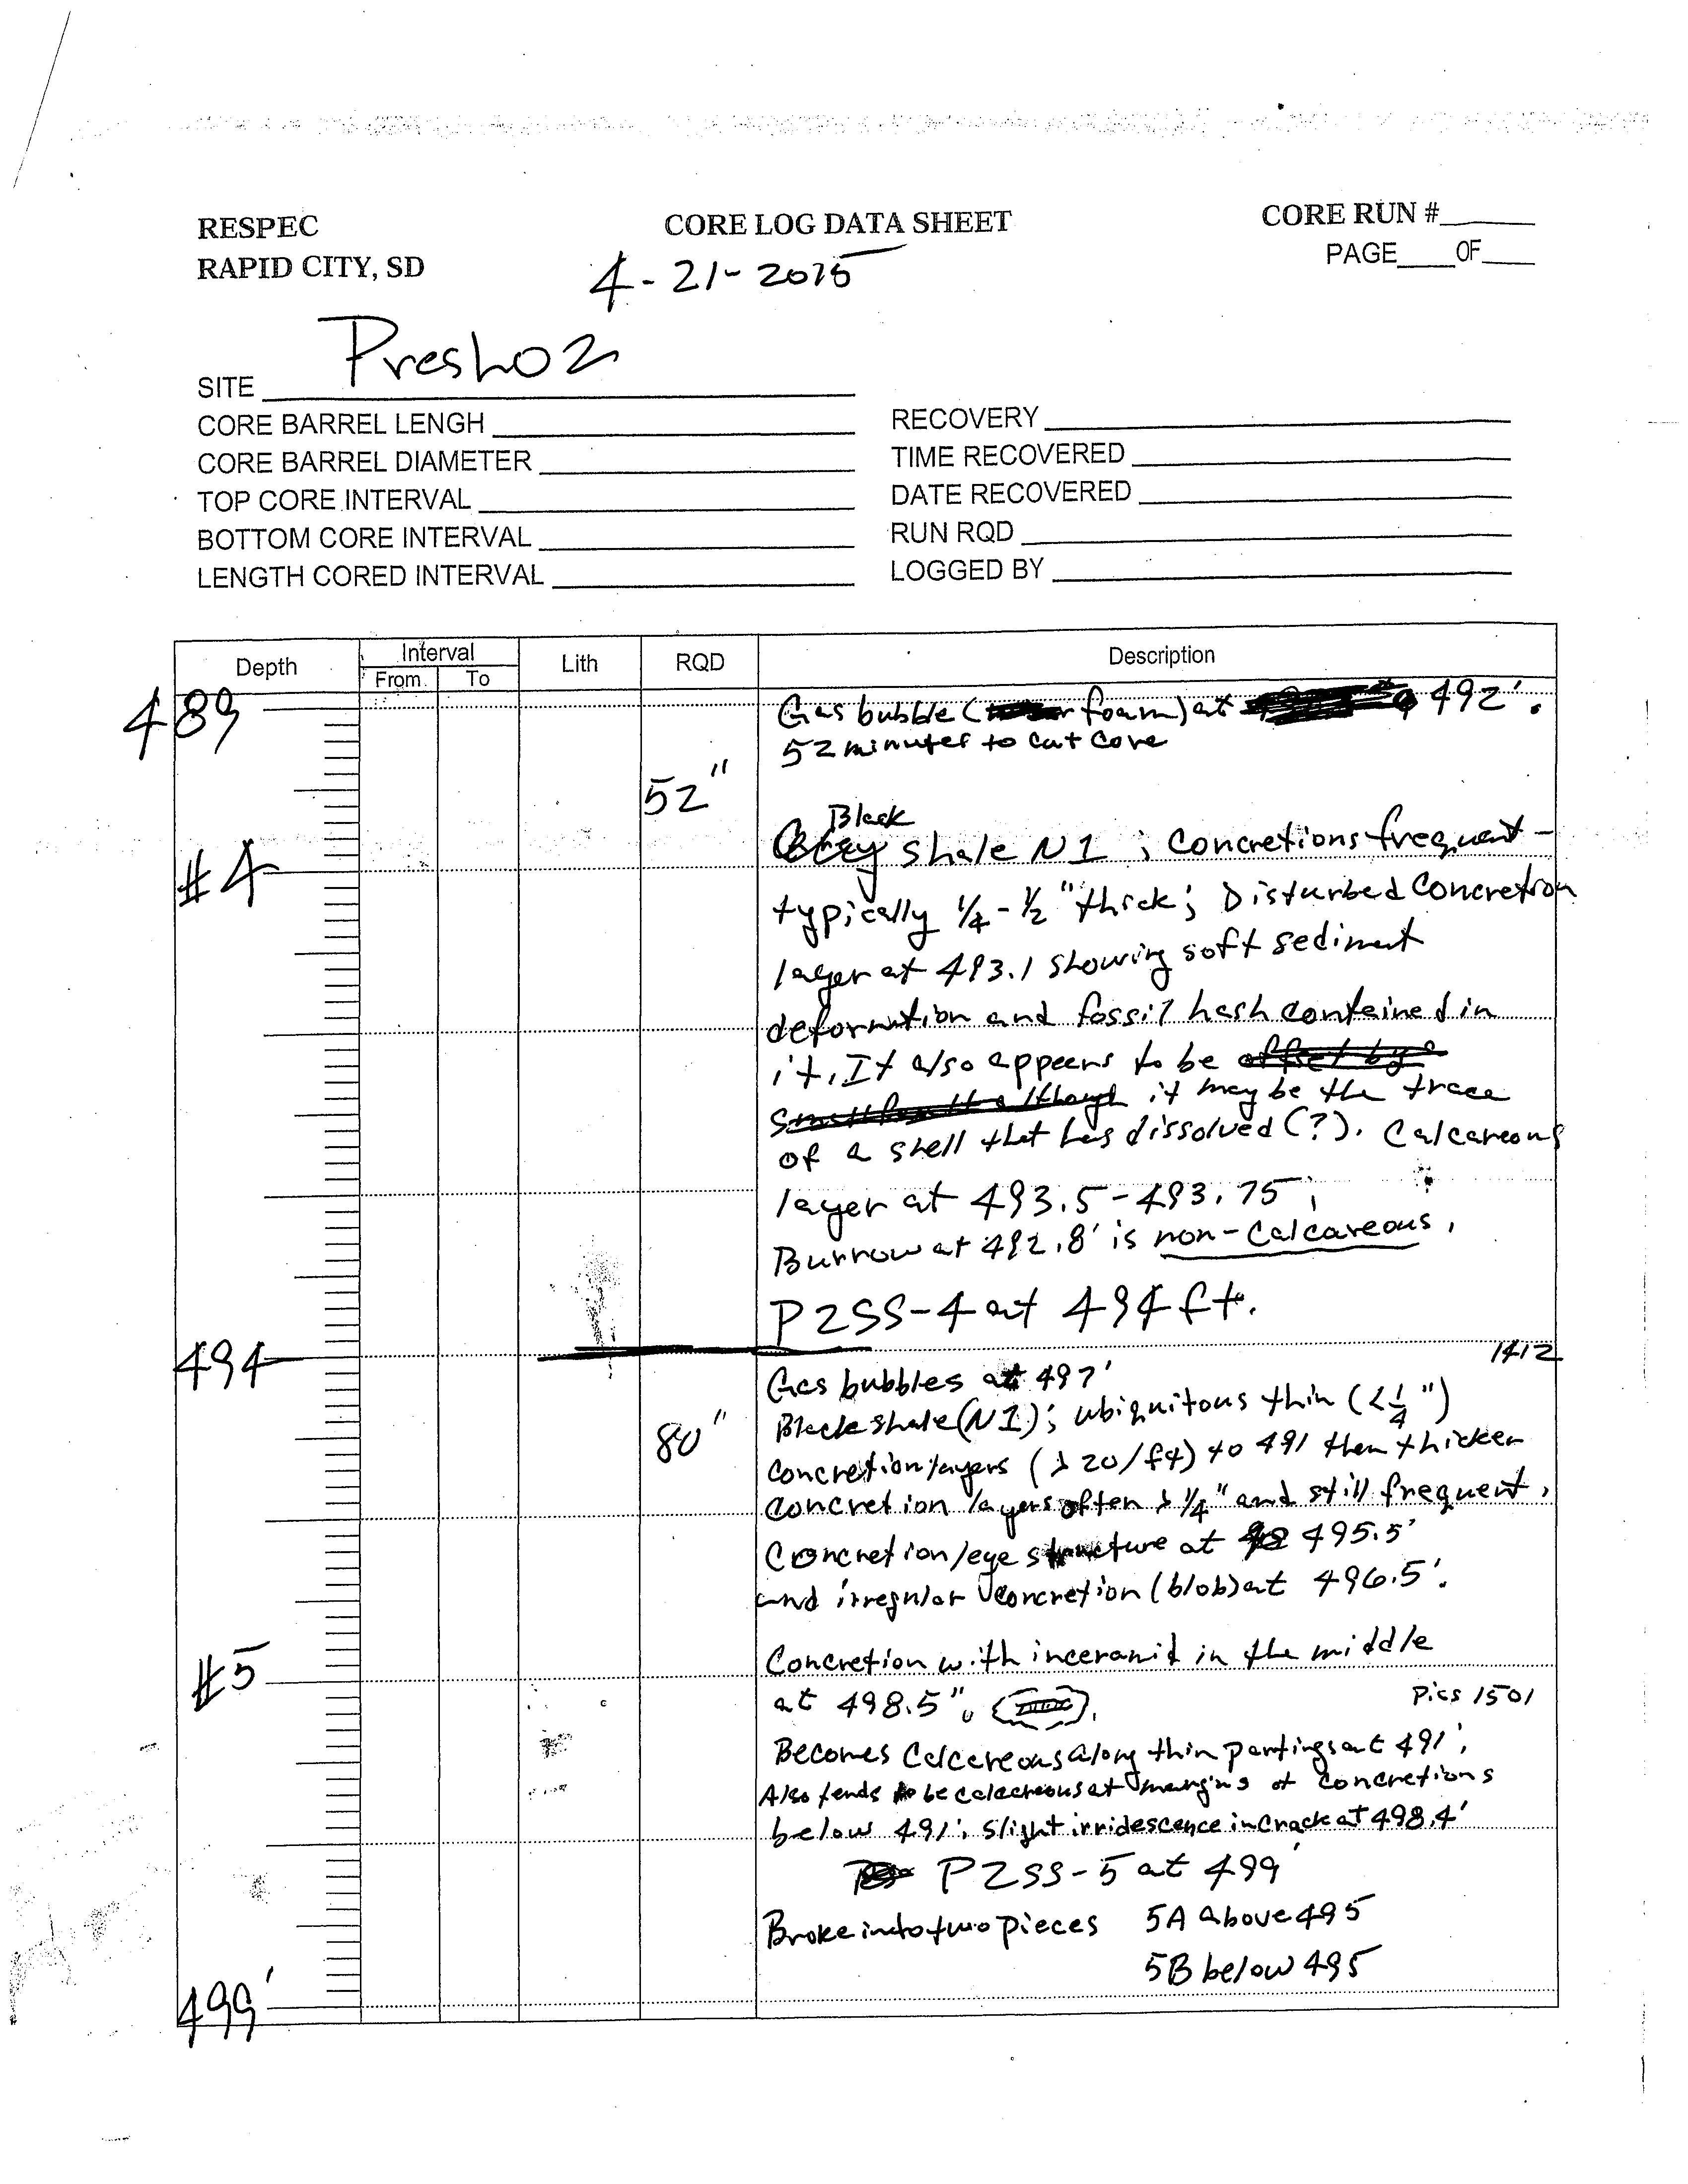 RESPEC
CORE LOG DATA SHEET
CORE RUN #
RAPID CITY, SD
4-21-2015
PAGE OF
SITE Presho 2
CORE BARREL LENGH
RECOVERY
CORE BARREL DIAMETER
TIME RECOVERED
TOP CORE INTERVAL
DATE RECOVERED
BOTTOM CORE INTERVAL
RUN RQD
LENGTH CORED INTERVAL
LOGGED BY
Depth Interval Lith RQD Description
From To
489
Gas bubble ( foam) at 492'.
52 minutes to cut core
52"
Black
shale N1 ; concretions frequent -
#4
typically 1/4 - 1/2" thick; Disturbed concretion
layer at 493.1 showing soft sediment
deformation and fossil hash contained in
it. It also appears to be
it may be the trace
of a shell that has dissolved (?). Calcareous
layer at 493.5-493.75;
Burrow at 492.8' is non-calcareous.
P2SS-4 at 494 ft.
494
1412
Gas bubbles at 497'
80"
Black shale (N1); ubiquitous thin (<1/4")
concretion layers (> 20/ft) to 491 then thicker
concretion layers often > 1/4" and still frequent.
Concretion/eye structure at 495.5'
and irregular concretion (blob) at 496.5'.
Concretion with inceramid in the middle
#5
at 498.5".
Pics 1501
Becomes calcareous along thin partings at 491';
Also tends to be calcareous at margins of concretions
below 491'; slight irridescence in crack at 498.4'
P2SS-5 at 499'
Broke into two pieces 5A above 495
5B below 495
499'